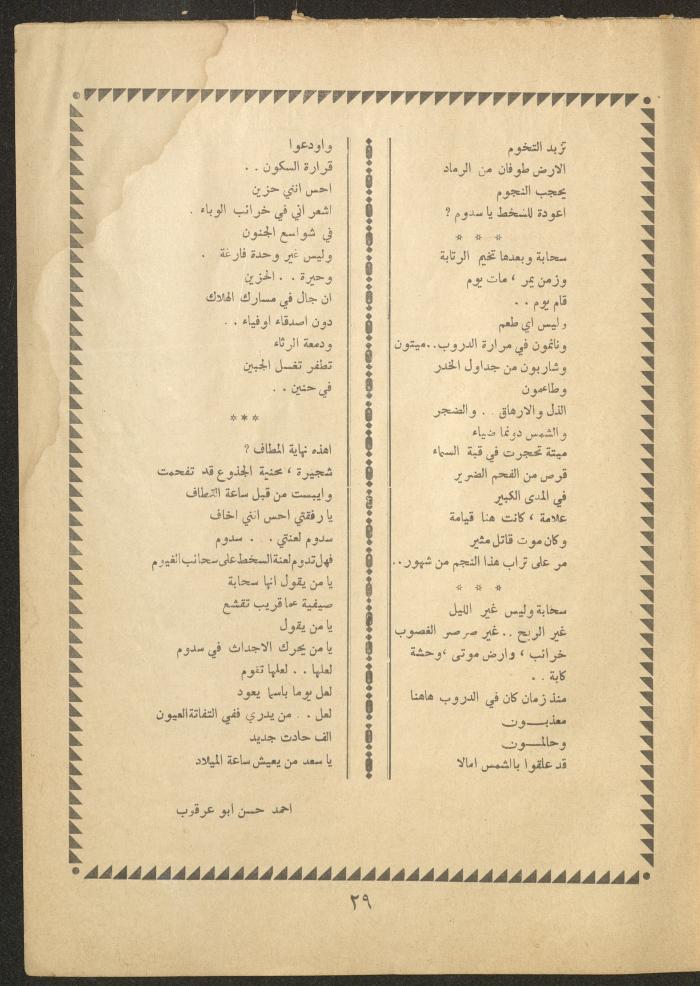 تزبد التخوم
الارض طوفان من الرماد
يحجب النجوم
اعودة للسخط يا سدوم ؟
* * *
سحابة وبعدها تخيم الرتابة
وزمن يمر ، مات يوم
قام يوم . .
وليس اي طعم
ونائمون في مرارة الدروب..ميتون
وشاربون من جداول الخدر
وطاعمون
الذل والارهاق . . والضجر
والشمس دونما ضياء
ميتة تحجرت في قبة السماء
قرص من الفحم الضرير
في المدى الكبير
علامة ، كانت هنا قيامة
وكان موت قاتل مثير
مر على تراب هذا النجم من شهور..
* * *
سحابة وليس غير الليل
غير الريح . . غير صرصر الغضوب
خرائب ، وارض موتى ، وحشة
كابة . .
منذ زمان كان في الدروب هاهنا
معذبـــون
وحالمـــون
قد علقوا بالشمس امالا
واودعوا
قرارة السكون . .
احس انني حزين
اشعر اني في خرائب الوباء .
في شواسع الجنون
وليس غير وحدة فارغة .
وحيرة . . الحزين
ان جال في مسارك الهلاك
دون اصدقاء اوفياء . .
ودمعة الرثاء
تطفر تغسل الجبين
في حنين . .
***
اهذه نهاية المطاف ؟
شجيرة ، محنية الجذوع قد تفحمت
وايبست من قبل ساعة القطاف
يا رفقتي احس انني اخاف
سدوم لعنتي . . سدوم
فهل تدوم لعنة السخط على سحائب الغيوم
يا من يقول انها سحابة
صيفية عما قريب تقشع
يا من يقول
يا من يحرك الاجداث في سدوم
لعلها . . لعلها تقوم
لعل يوما باسما يعود
لعل . . من يدري ففي التفاتة العيون
الف حادث جديد
يا سعد من يعيش ساعة الميلاد
احمد حسن ابو عرقوب
٢٩